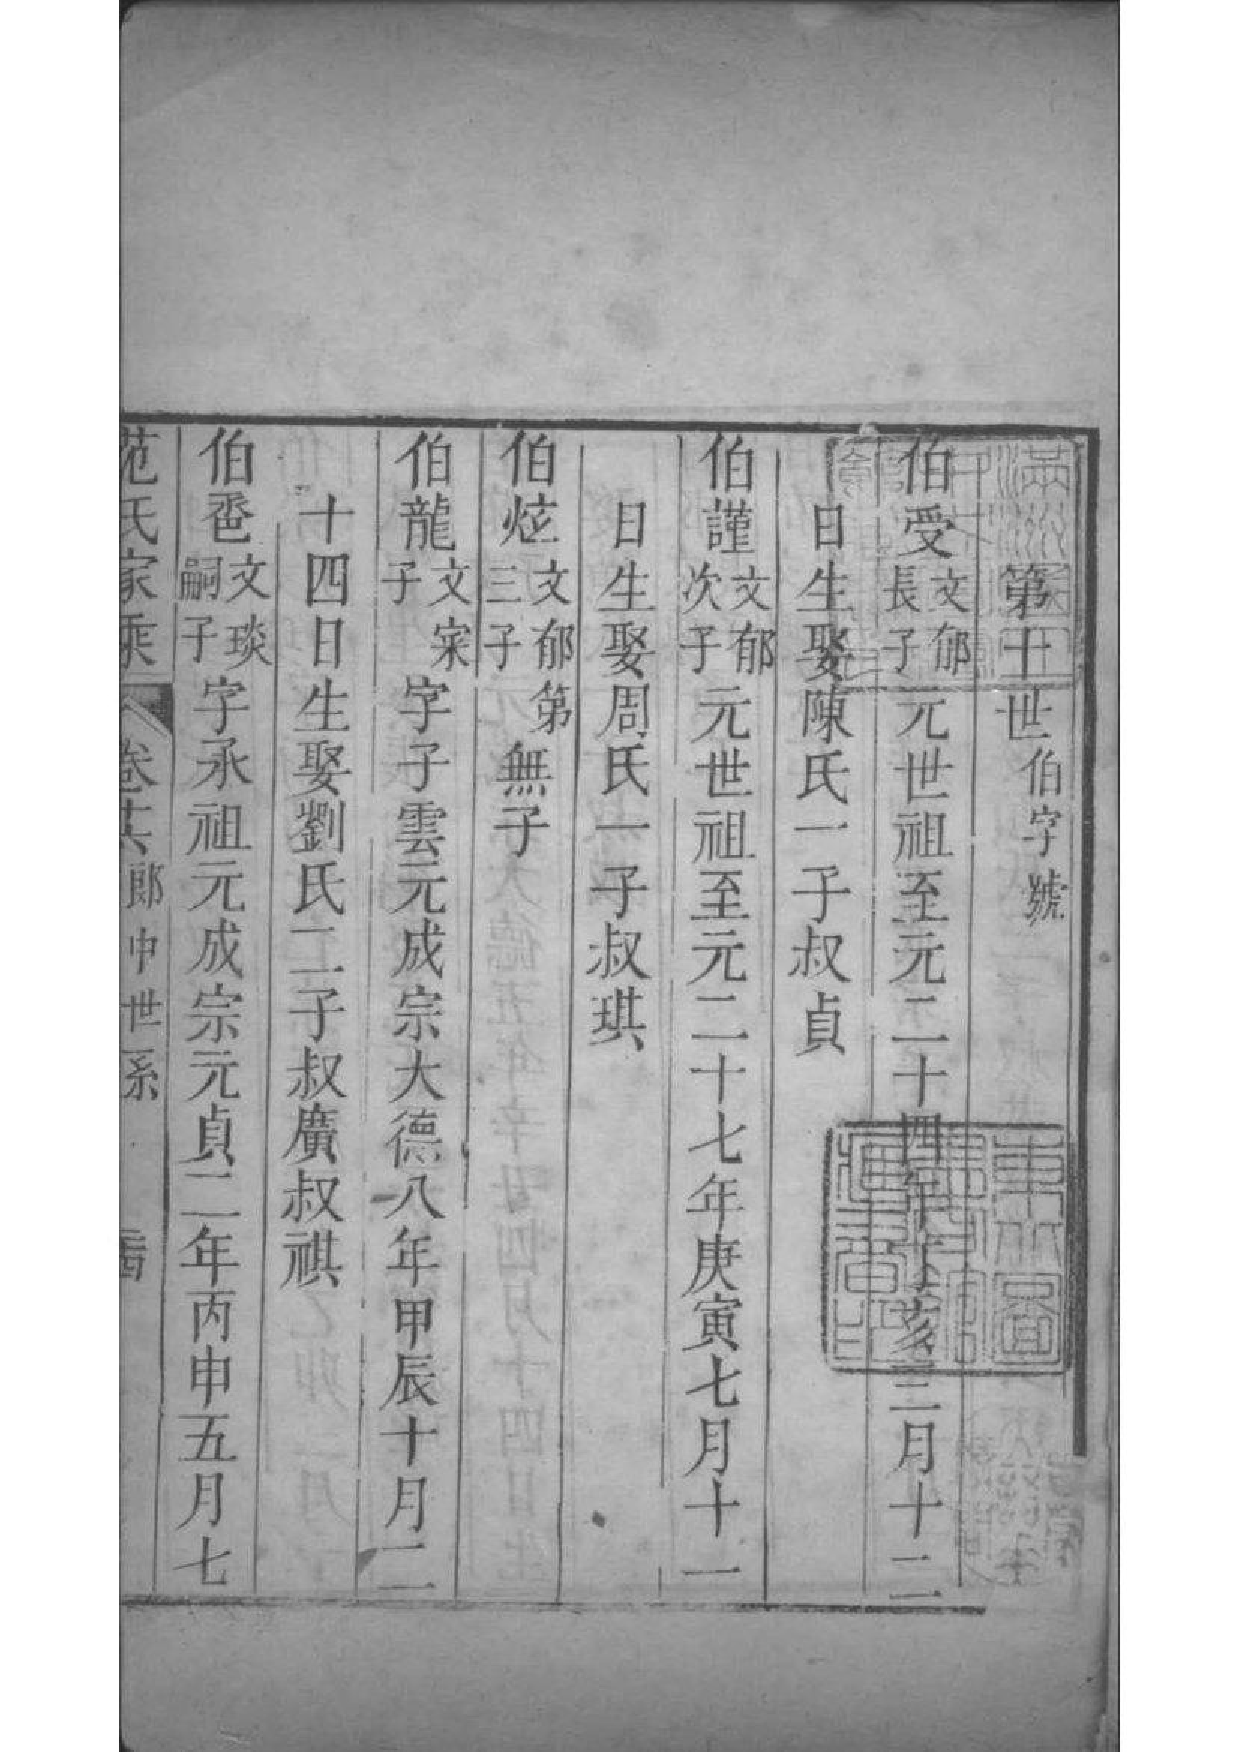 第十世伯字號
伯受文郁長子元世祖至元二十四年丁亥三月十二
日生娶陳氏一子叔貞
伯謹文郁次子元世祖至元二十七年庚寅七月十一
日生娶周氏一子叔琪
伯炫文郁第三子無子
伯龍文寀子字子雲元成宗大德八年甲辰十月二
十四日生娶劉氏二子叔廣叔祺
伯卺文琰嗣子字承祖元成宗元貞二年丙申五月七
范氏家乘 卷十六 郎中世系